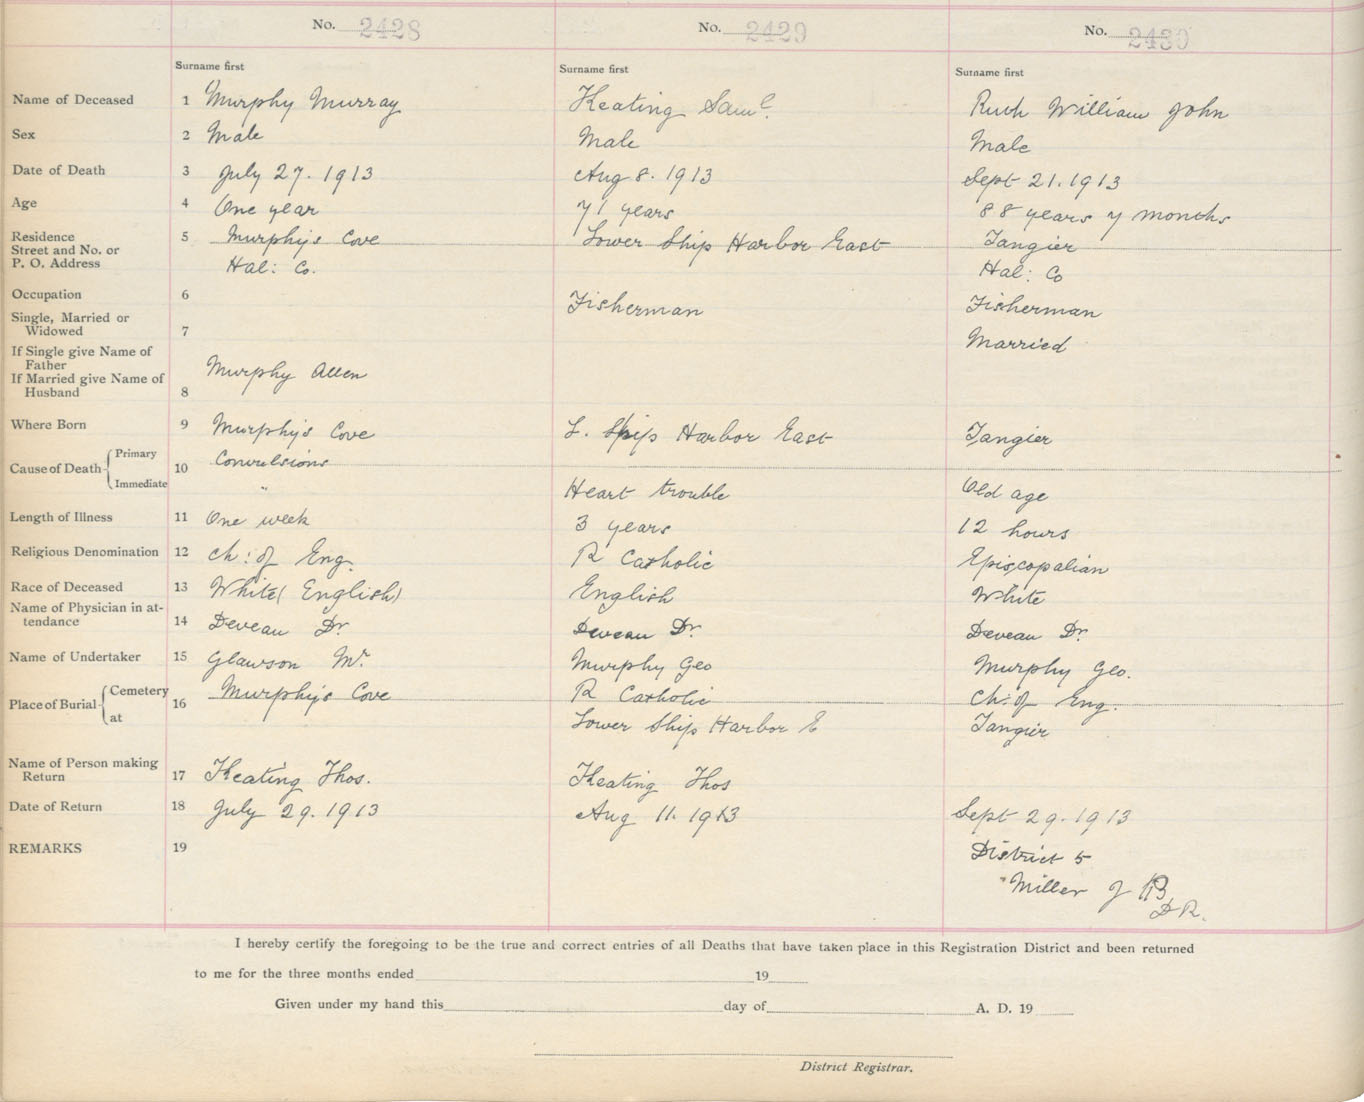 No. 2428 No. 2429 No. 2430
Surname first Surname first Surname first
Name of Deceased 1 Murphy Murray Keating Saml. Ruth William John
Sex 2 Male Male Male
Date of Death 3 July 27. 1913 Aug 8. 1913 Sept 21. 1913
Age 4 One year 71 years 88 years 7 months
Residence 5 Murphy's Cove Lower Ship Harbor East Tangier
Street and No. or
P. O. Address Hal: Co. Hal: Co
Occupation 6 Fisherman Fisherman
Single, Married or
Widowed 7 Married
If Single give Name of
Father Murphy Allen
If Married give Name of
Husband 8
Where Born 9 Murphy's Cove L. Ship Harbor East Tangier
Cause of Death Primary 10 Convulsions
Immediate " Heart trouble Old age
Length of Illness 11 One week 3 years 12 hours
Religious Denomination 12 Ch: of Eng. R Catholic Episcopalian
Race of Deceased 13 White (English) English White
Name of Physician in at-
tendance 14 Deveau Dr. Deveau Dr. Deveau Dr.
Name of Undertaker 15 Glawson Mr. Murphy Geo Murphy Geo.
Place of Burial Cemetery 16 Murphy's Cove R Catholic Ch: of Eng.
at Lower Ship Harbor E Tangier
Name of Person making
Return 17 Keating Thos. Keating Thos
Date of Return 18 July 29. 1913 Aug 11. 1913 Sept 29. 1913
REMARKS 19 District 5
Miller J B
D R.
I hereby certify the foregoing to be the true and correct entries of all Deaths that have taken place in this Registration District and been returned
to me for the three months ended 19
Given under my hand this day of A. D. 19
District Registrar.